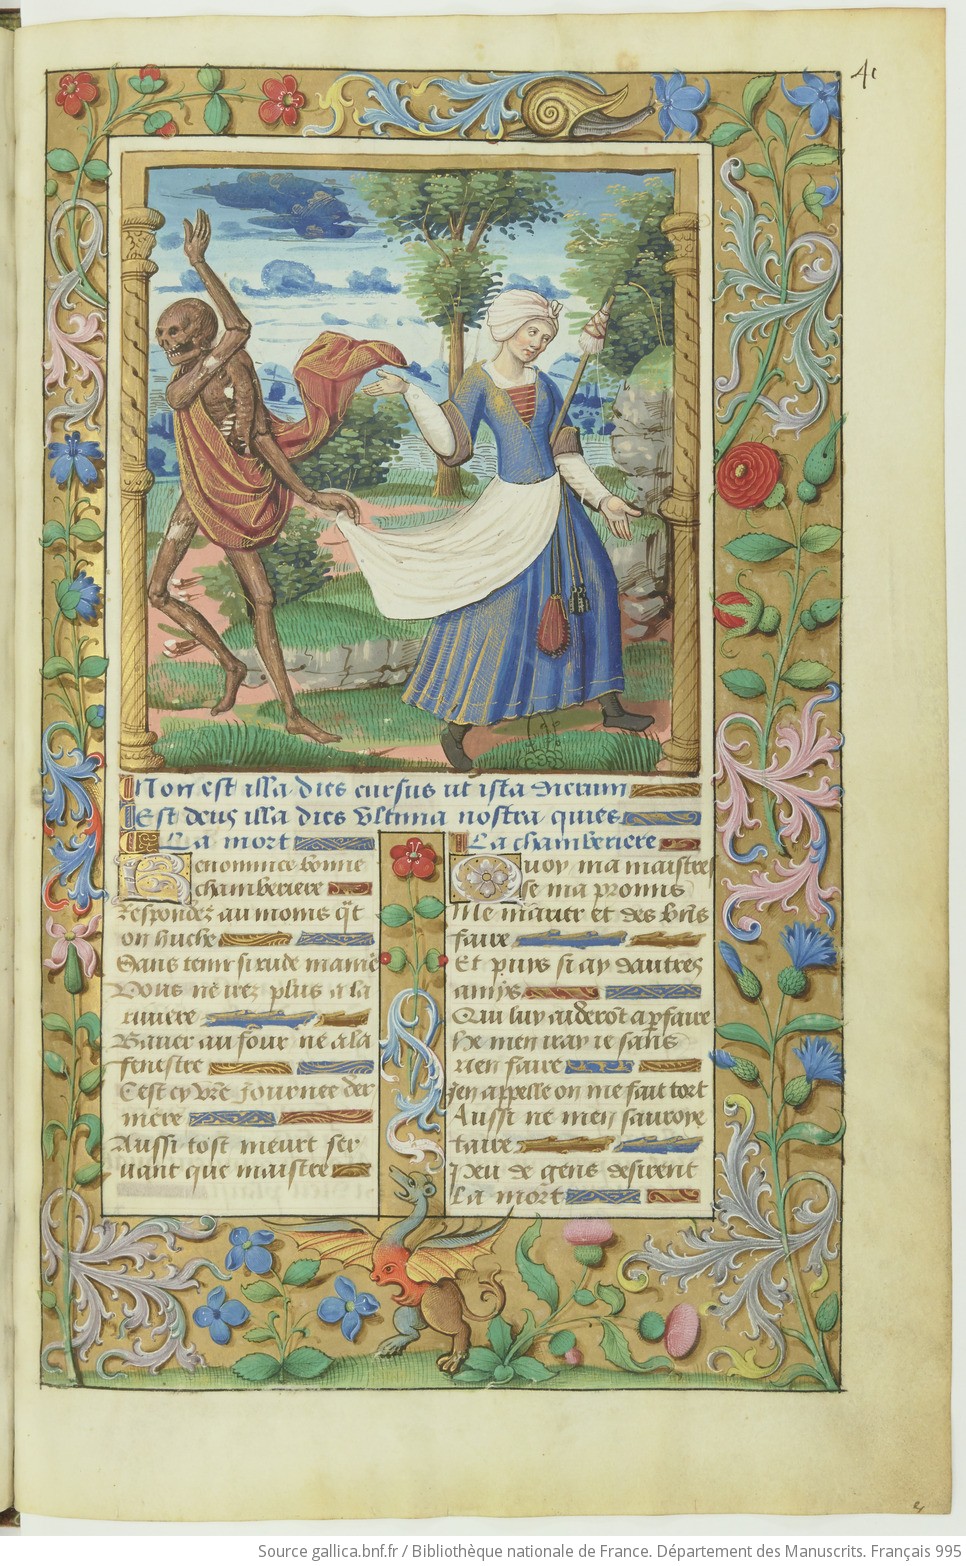 41
Non est illa dies cursus ut ista dierum
Est deus illa dies Ultima nostra quies
La mort
Renommee bonne
chamberiere
Respondez au moins qt
on huche
Sans tenir si rude maniē
Vous ne irez plus a la
riuiere
Bauer au four ne a la
fenestre
Cest cy vrē journee der
niere
Aussi tost meurt ser
uant que maistre
La chamberiere
Quoy ma maistres
se ma promis
Me marier et des biēs
faire
Et puys si ay dautres
amys
Qui luy aideroit a pfaire
He men iray ie sans
rien faire
Jen appelle on me fait tort
Aussi ne men sauroye
taire
Peu de gens desirent
La mort
Source gallica.bnf.fr / Bibliothèque nationale de France. Département des Manuscrits. Français 995